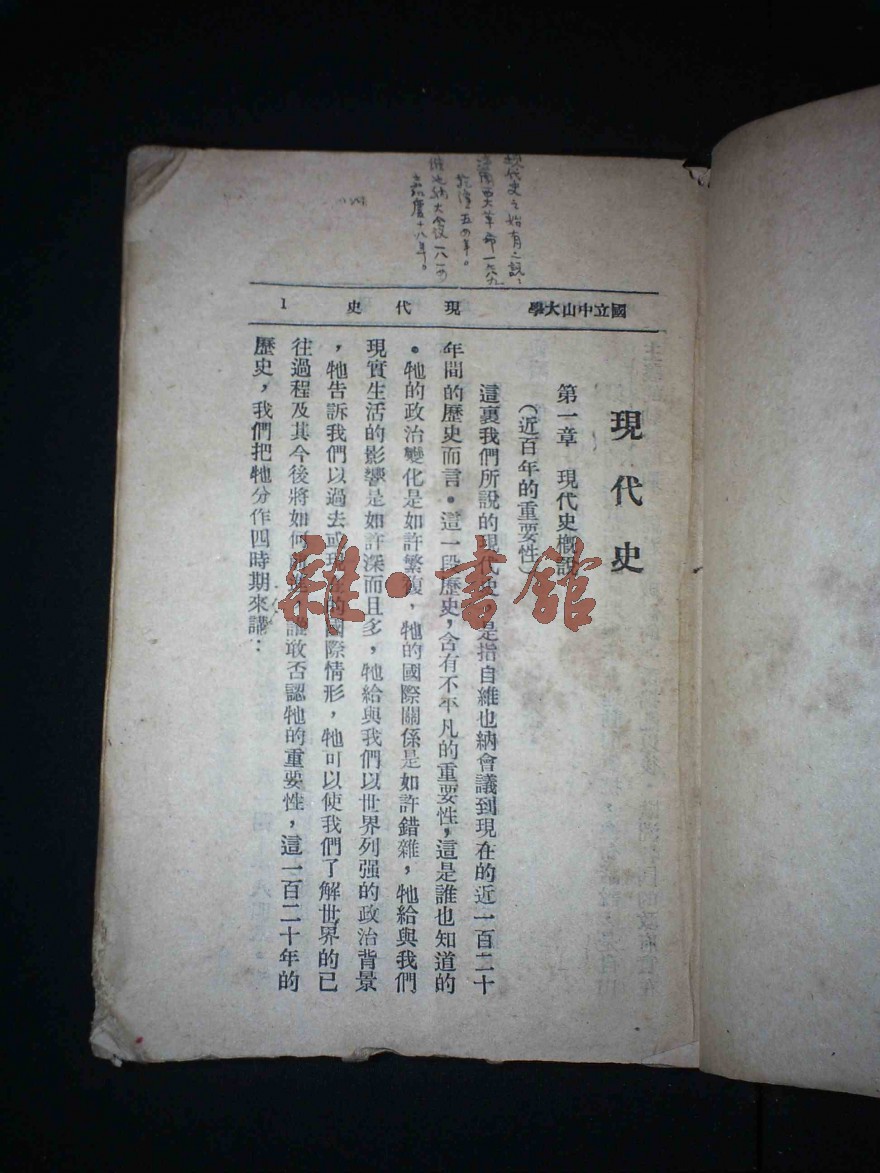 國立中山大學 現代史 1
現代史
第一章 現代史概說
(近百年的重要性)
這裏我們所說的現代史，是指自維也納會議到現在的近一百二十
年間的歷史而言。這一段歷史，含有不平凡的重要性，這是誰也知道的
。牠的政治變化是如許繁複，牠的國際關係是如許錯雜，牠給與我們
現實生活的影響是如許深而且多，牠給與我們以世界列强的政治背景
，牠告訴我們以過去或現在的國際情形，牠可以使我們了解世界的已
往過程及其今後將如何 誰敢否認牠的重要性，這一百二十年的
歷史，我們把牠分作四時期來講：
現代史之始有二說：
法蘭西大革命一七八九
乾隆五四年。
維也納大會議一八一四
嘉慶十八年。
雜·書館